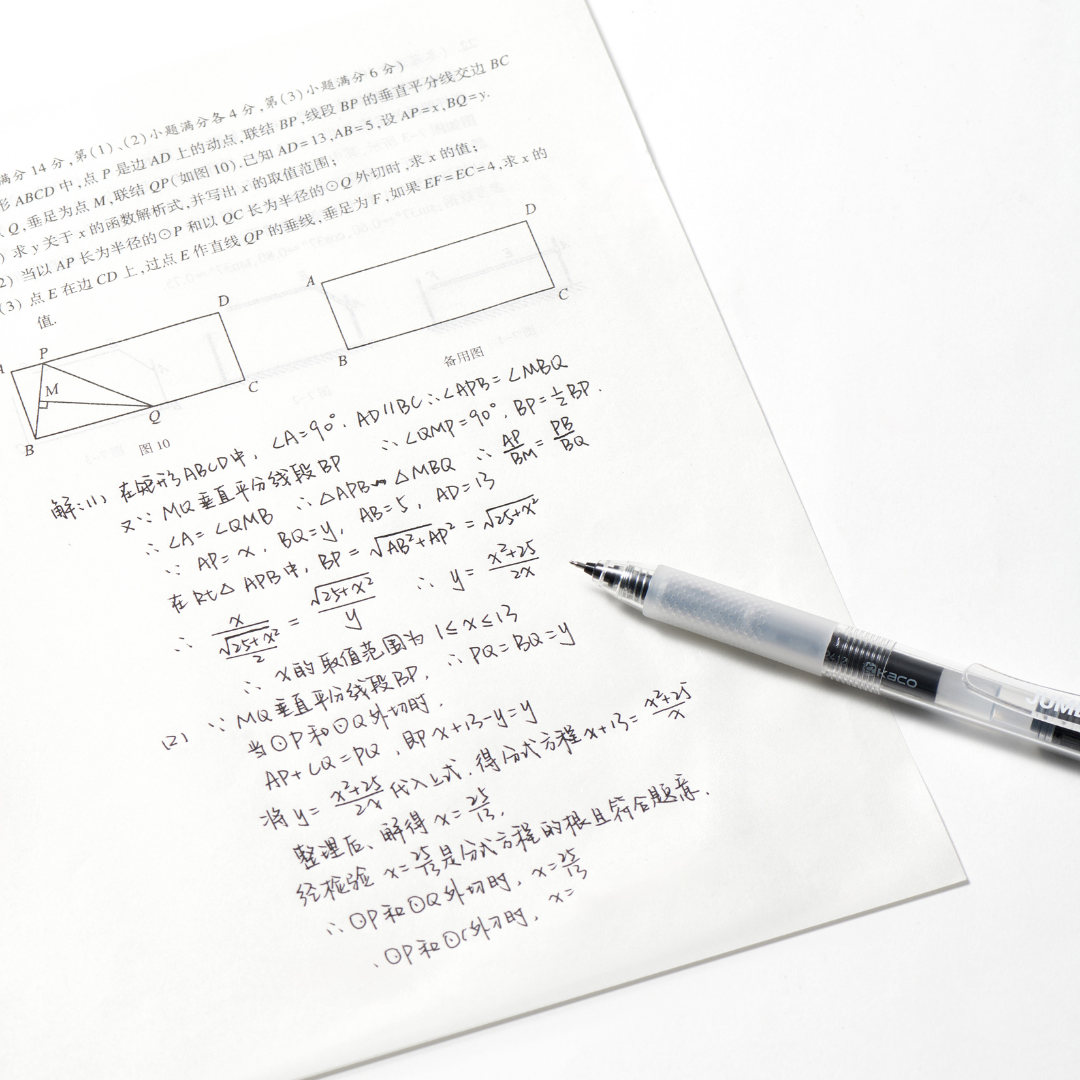 满分14分,第(1)、(2)小题满分各4分,第(3)小题满分6分)
形ABCD中,点P是边AD上的动点,联结BP,线段BP的垂直平分线交边BC
Q,垂足为点M,联结QP(如图10).已知AD=13,AB=5,设AP=x,BQ=y.
)求y关于x的函数解析式,并写出x的取值范围;
2)当以AP长为半径的⊙P和以QC长为半径的⊙Q外切时,求x的值;
(3)点E在边CD上,过点E作直线QP的垂线,垂足为F,如果EF=EC=4,求x的
值.
A P D
M
B Q C
图10
A D
B C
备用图
解:(1) 在矩形ABCD中, ∠A=90°. AD//BC ∴∠APB=∠MBQ
又∵ MQ垂直平分线段BP ∴∠QMP=90°. BP=½BP.
∴ ∠A=∠QMB ∴△APB∽△MBQ ∴ AP/BM=PB/BQ
∵ AP=x, BQ=y, AB=5, AD=13
在Rt△APB中, BP=√AB²+AP²=√25+x²
∴ x/(√25+x²/2)=√25+x²/y ∴ y=x²+25/2x
∴ x的取值范围为1≤x≤13
(2) ∵ MQ垂直平分线段BP, ∴PQ=BQ=y
当⊙P和⊙Q外切时.
AP+CQ=PQ,即x+13-y=y
将y=x²+25/2x代入上式.得分式方程x+13=x²+25/x
整理后、解得x=25/13.
经检验x=25/13是分式方程的根且符合题意.
∴⊙P和⊙Q外切时, x=25/13
⊙P和⊙ 外 时, x=
KACO